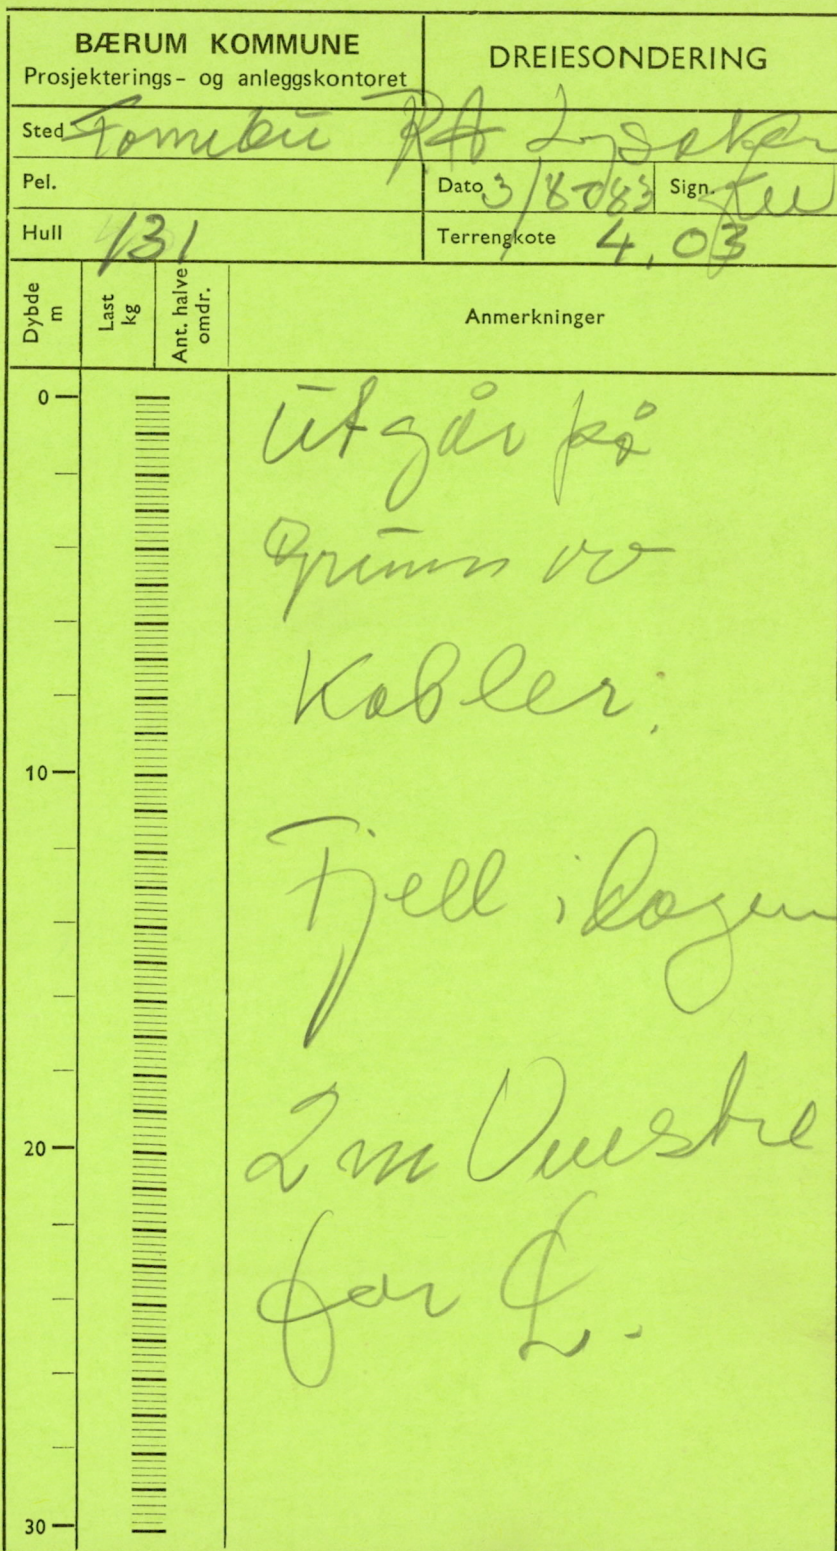 BÆRUM KOMMUNE
Prosjekterings- og anleggskontoret
DREIESONDERING
Sted Fornebu RA Lysaker
Pel.
Dato 3/8-83 Sign.
Hull 131
Terrengkote 4,03
Dybde m
Last kg
Ant. halve omdr.
Anmerkninger
0
utgår på
grunn av
Kabler.
10
Fjell i dagen
20
2 m Venstre
for ℄.
30